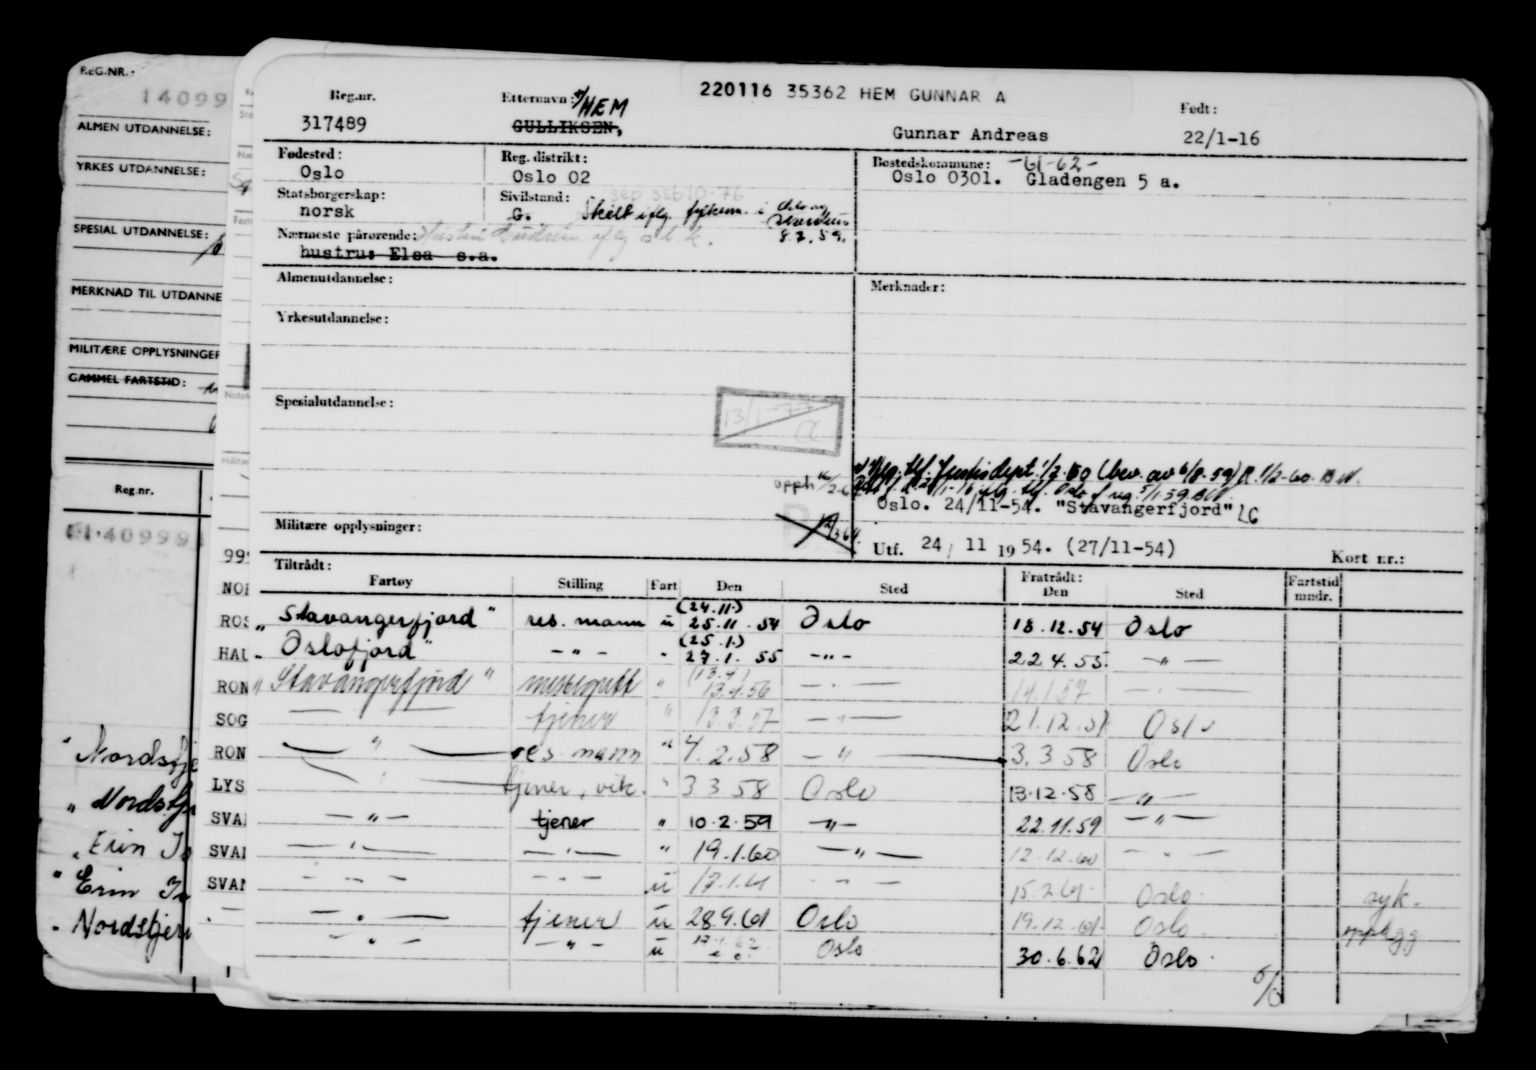 REG.NR.:
14099
ALMEN UTDANNELSE:
YRKES UTDANNELSE:
SPESIAL UTDANNELSE:
MERKNAD TIL UTDANNE
MILITÆRE OPPLYSNINGER
GAMMEL FARTSTID:
Reg.nr.
61.40999
"Nordstje
"Nordstje
"Erin Jo
"Erin Jo
"Nordstjern
999
NOR
ROS
HAU
RON
SOG
RON
LYS
SVAN
SVAN
SVAN
220116 35362 HEM GUNNAR A
Reg.nr.
317489
Etternavn: HEM
GULLIKSEN,
Gunnar Andreas
Født:
22/1-16
Fødested:
Oslo
Reg. distrikt:
Oslo 02
Bostedskommune: -61-62-
Oslo 0301. Gladengen 5 a.
Statsborgerskap:
norsk
Sivilstand:
G. Skilt iflg. fylkesm. i Oslo og Akershus
8.7.59.
sep
Nærmeste pårørende:
iflg
hustru: Elsa s.a.
Almenutdannelse:
Merknader:
Yrkesutdannelse:
Spesialutdannelse:
13/1-77
Iflg. tlf. Justisdept. 1/2-60 (bev. av 6/8-59) R. 1/2-60. BW.
Oslo. 24/11-54. "Stavangerfjord" LG
Militære opplysninger:
Utf. 24/ 11 1954. (27/11-54)
Kort nr.:
Tiltrådt:
Fartøy Stilling Fart Den Sted
Fratrådt:
Den Sted
Fartstid
mndr.
(24.11.)
"Stavangerfjord" res. mann u 25.11.54 Oslo 18.12.54 Oslo
(25.1.)
" Oslofjord" -"- " 27.1.55 -"- 22.4.55. -"-
"Stavangerfjord" messegutt " 13.4.56 -"- 14.1.57 -"-
— tjener " 13.3.57 -"- 21.12.57 Oslo
—"— res. mann " 4.2.58 -"- 3.3.58 Oslo
—"— tjener, vik. " 3 3 58 Oslo 13.12.58 -"-
—"— tjener " 10.2.59 -"- 22.11.59 -"-
—"— —"— " 19.1.60 —"— 12.12.60 -"-
-"- -"- u 17.1.61 -"- 15.2.61. Oslo. syk.
—"— tjener u 28.9.61 Oslo 19.12.61. Oslo. opplegg
-"- -"- u 17.1.62 Oslo 30.6.62 Oslo.